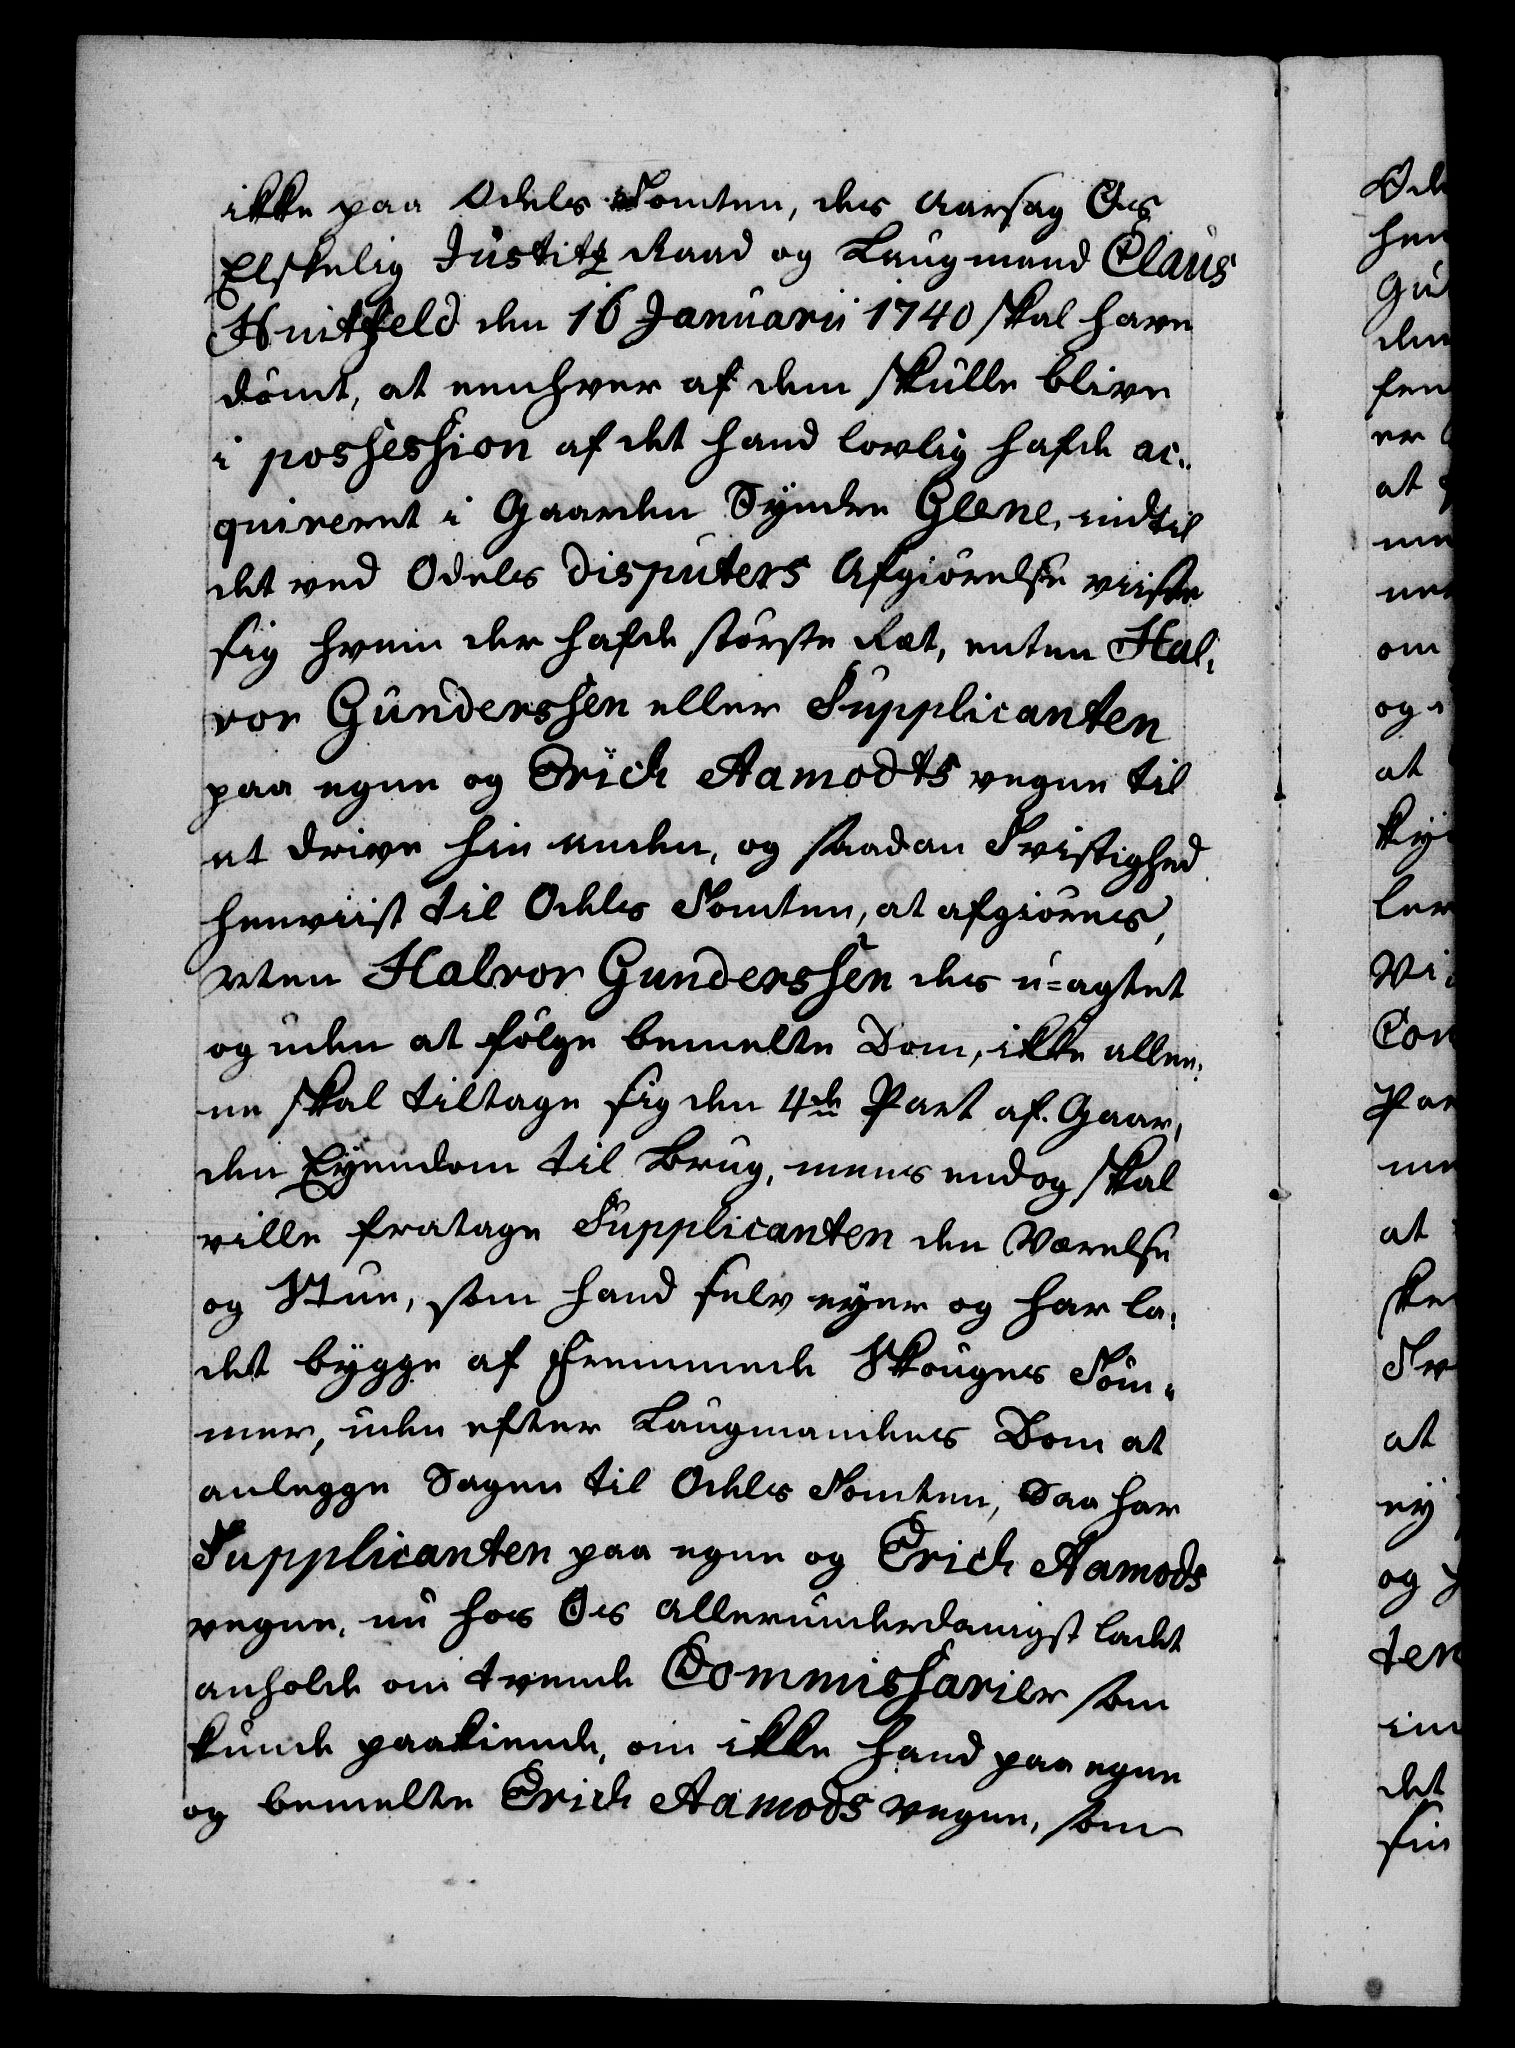 ikke paa Odels Tomten, des Aarsag Os
Elskelig Justitz Raad og Laugmand Claus
Huitfeld den 16 Januarii 1740 skal have
dömt, at eenhver af dem skulle blive
i possession af det hand lovlig hafde ac-
qvireret i Gaarden Syndre Glene, indtil
det ved Odels disputers Afgiörelse viiste
sig hvem der hafde störste Ret, enten Hal-
vor Gunderssen eller Supplicanten
paa egne og Erich Aamodts vegne til
at drive hin anden, og saadan Tvistighed
henviist til Odels Tomten, at afgiöres,
Men Halvor Gunderssen des u-agtet
og uden at fölge bemelte Dom, ikke allee-
ne skal tiltage sig den 4de Part af Gaar-
den Eyendom til Brug, mens endog skal
ville fratage Supplicanten den Værelse
og Stue, som hand selv eyer og har la-
det bygge af fremmede Skouges Töm-
mer, uden efter Laugmandens Dom at
anlegge Sagen til Odels Tomten, Saa har
Supplicanten paa egne og Erich Aamods
vegne, nu hos Os allerunderdanigst ladet
anholde om tvende Commissarier som
kunde paakiende, om ikke hand paa egne
og bemelte Erich Aamods vegne, som